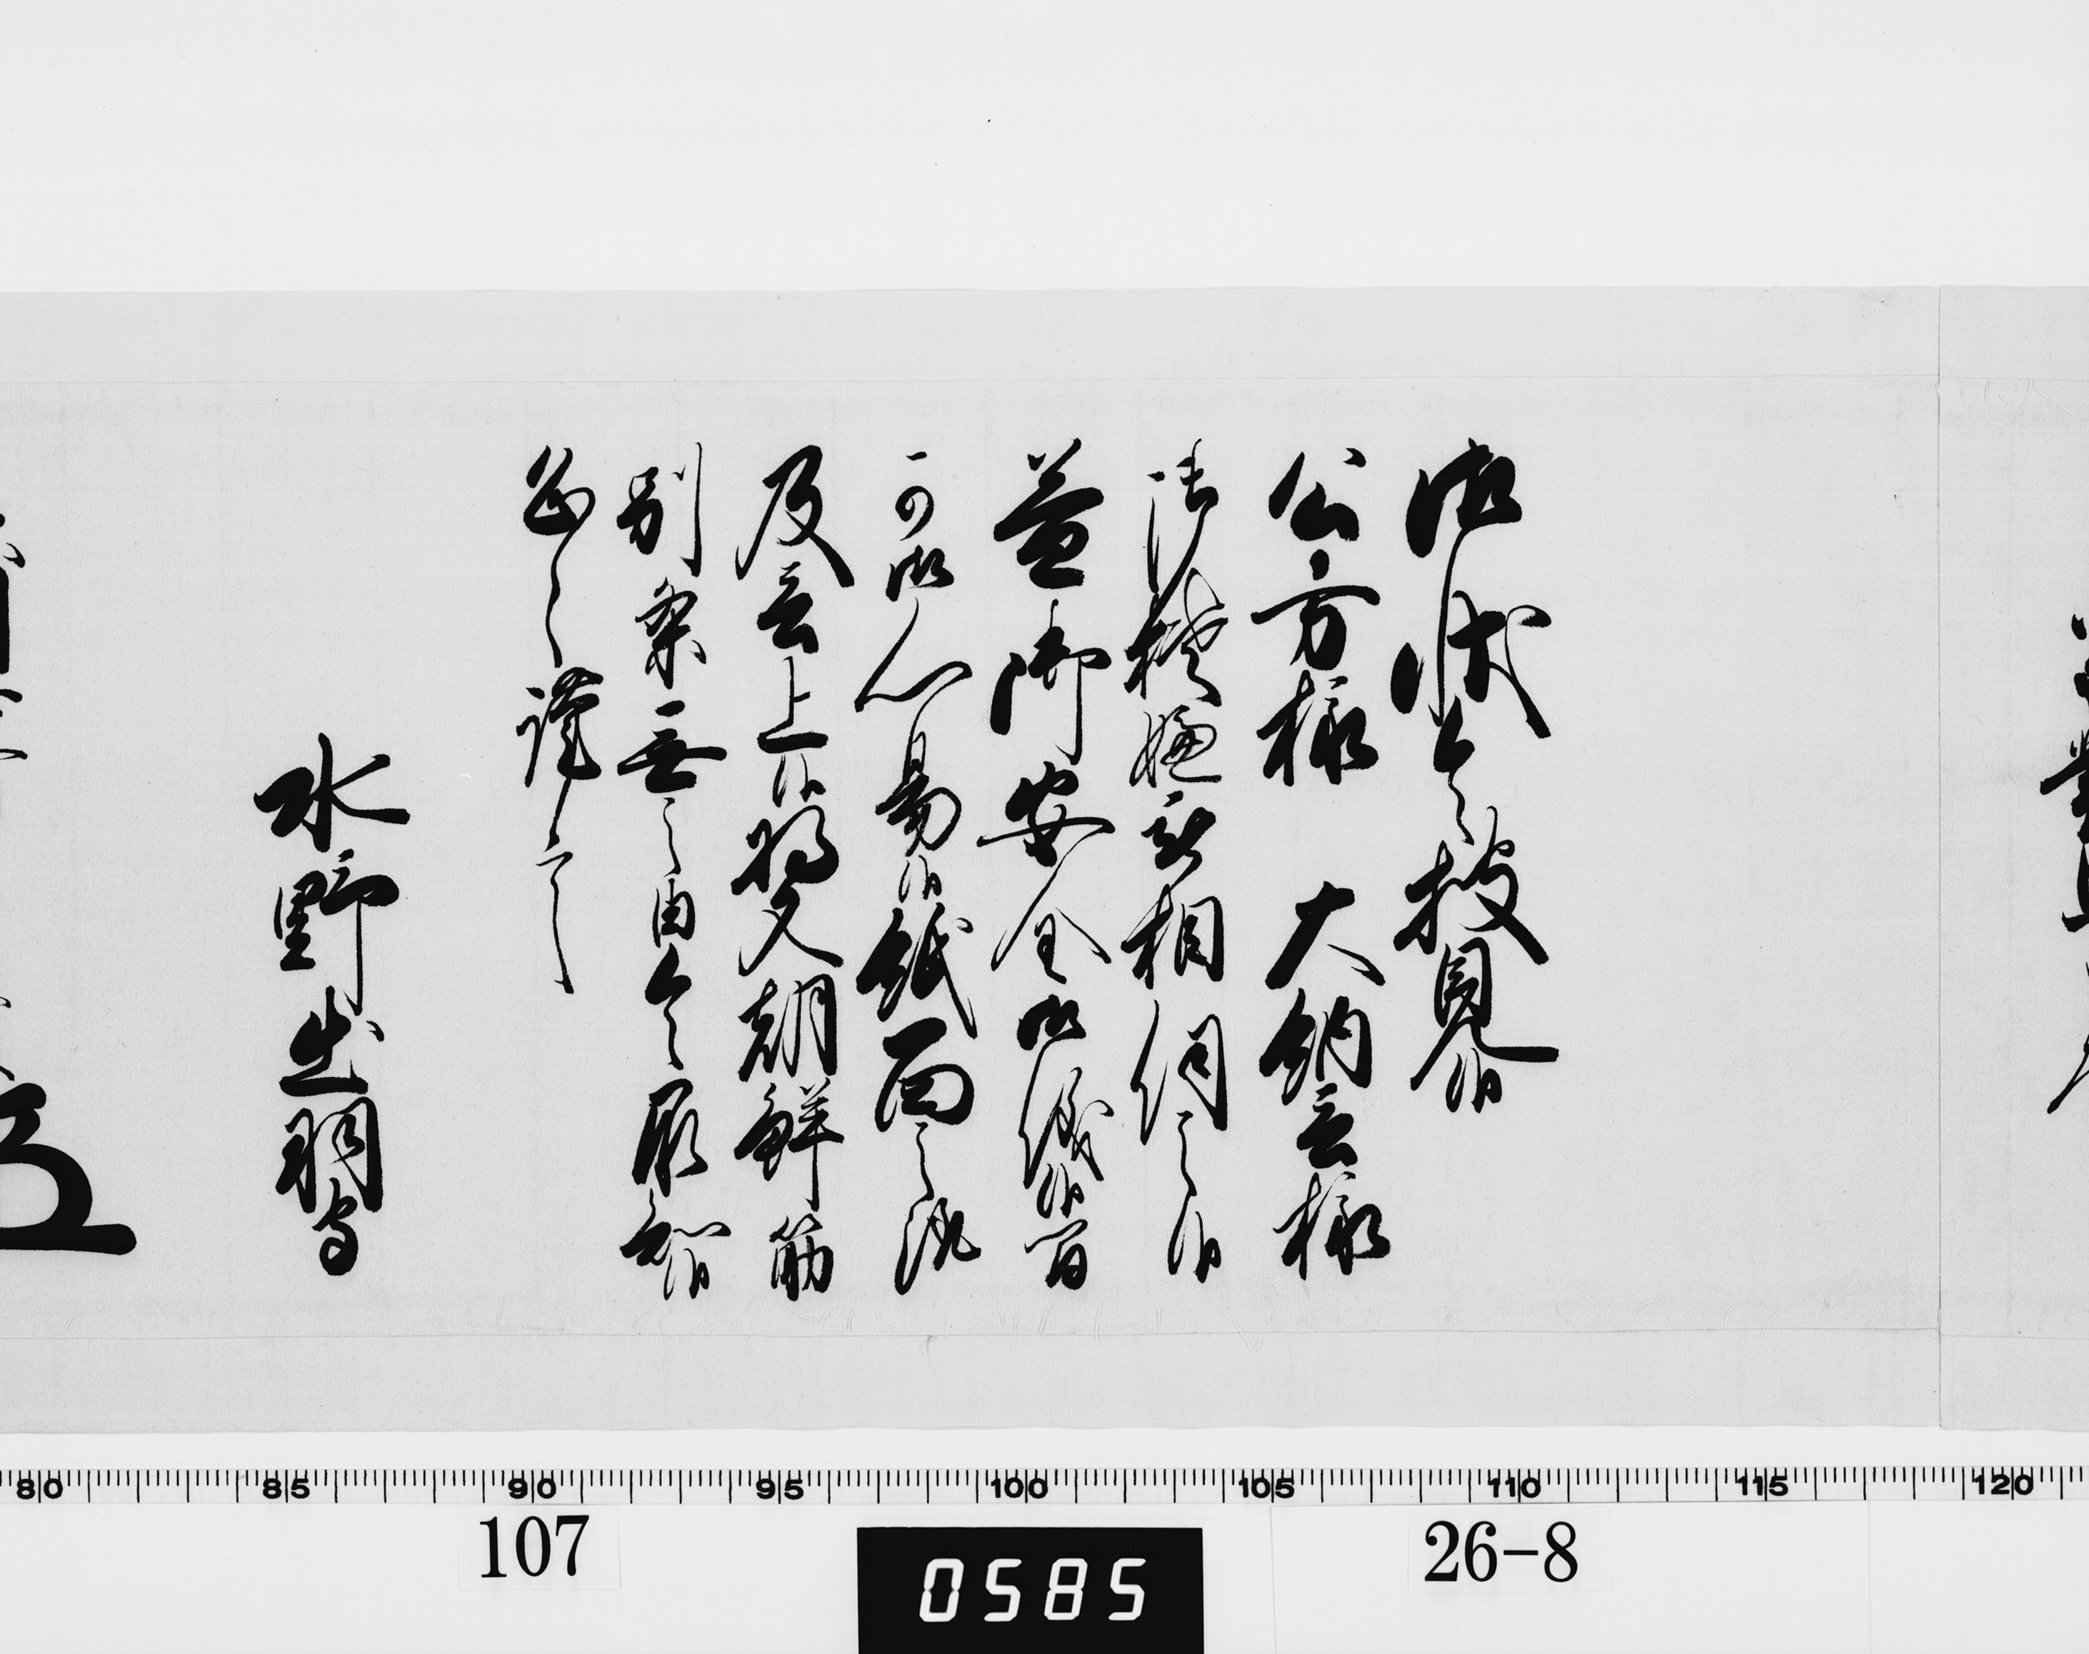 御状令披見候
公方様　大納言様
御機嫌被相伺之候
益御安全御儀候間
可御心易候紙面之趣
及言上候将又朝鮮筋
別条無之由令承知候
恐々謹言
水野出羽守
80 85 90 95 100 105 110 115 120
107
0585
26-8